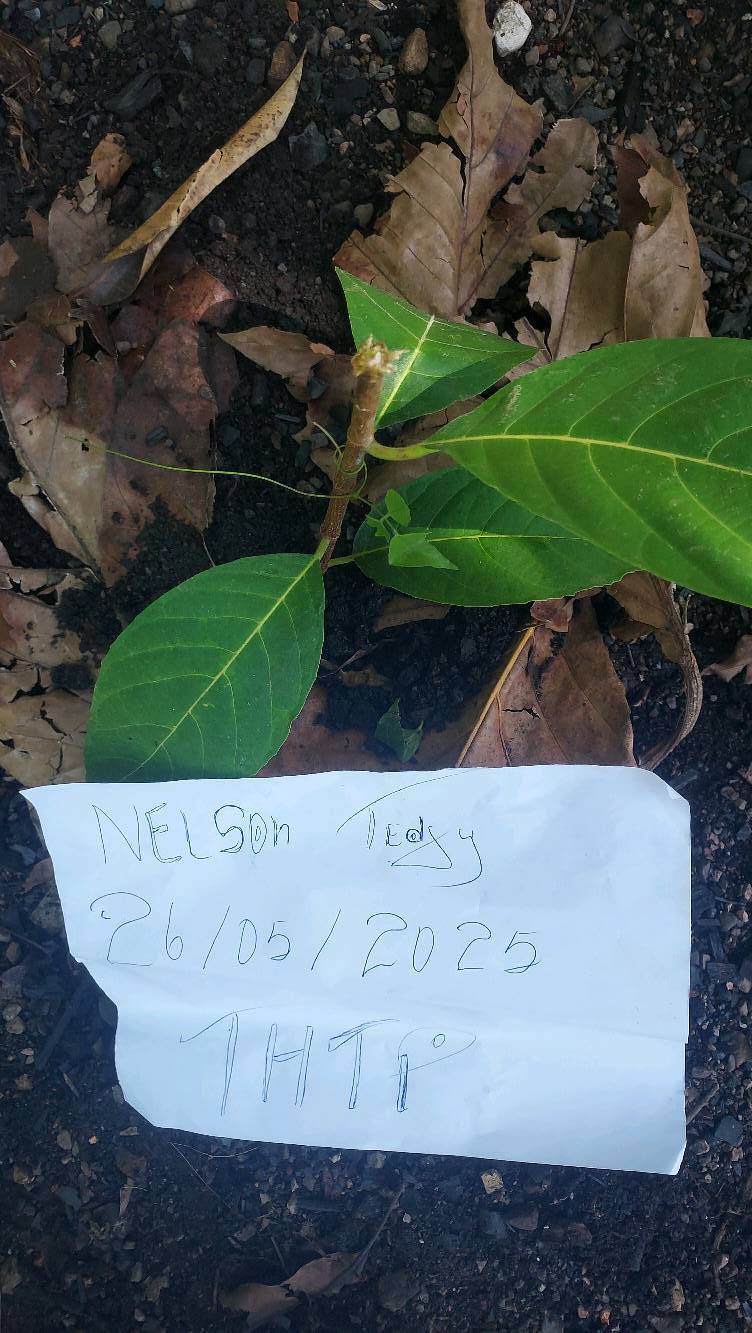 NELSOn Tedjy
26/05/2025
THTP